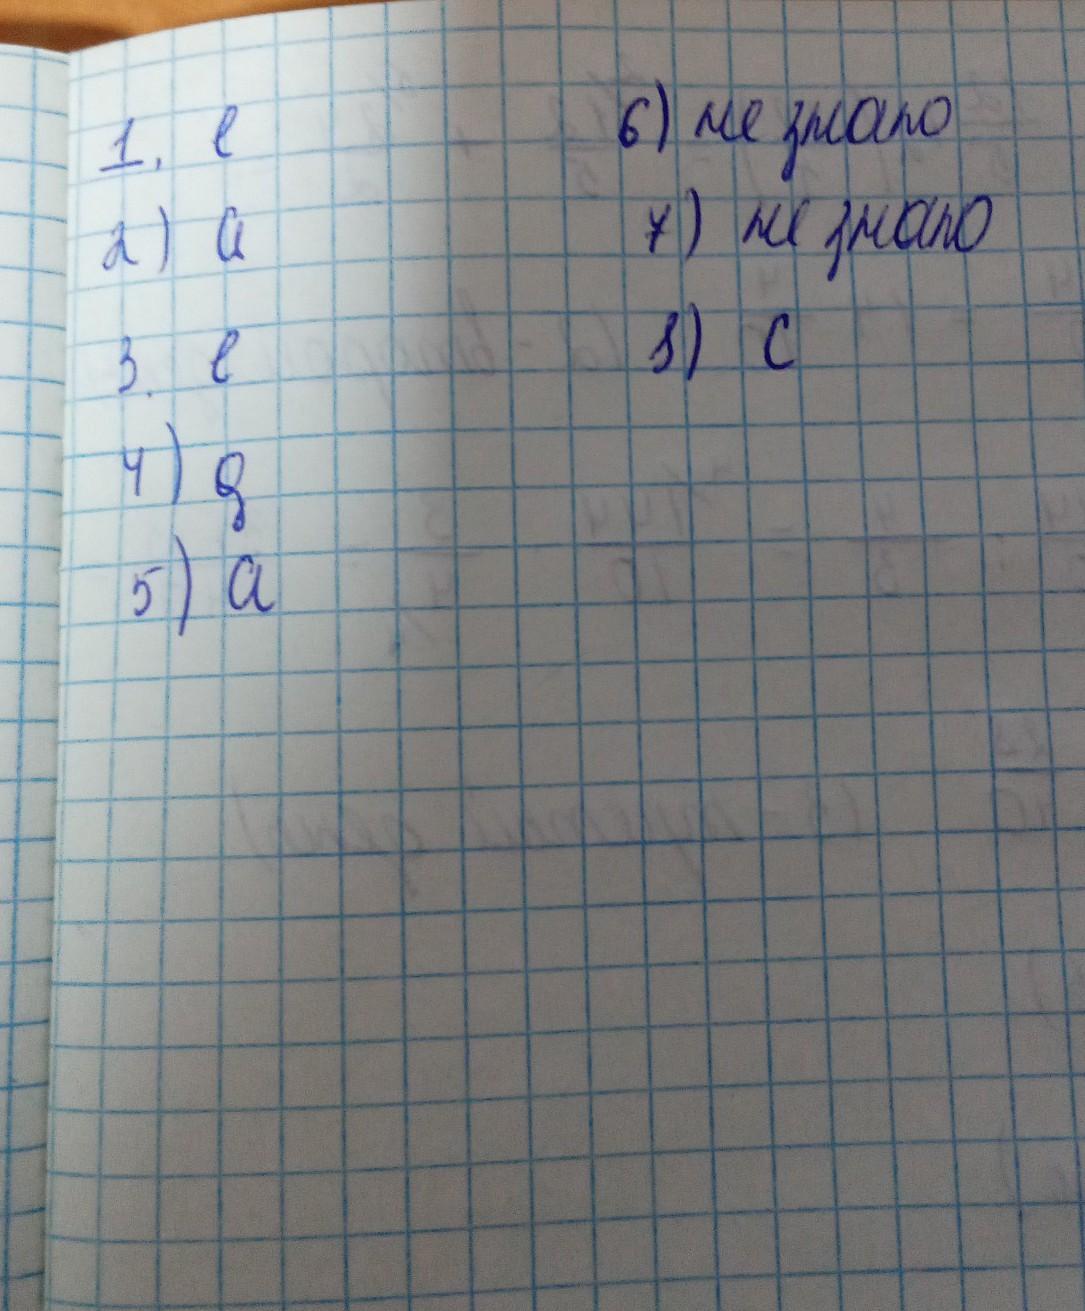 1. е
2) а
3. е
4) д
5) а
6) не знаю
7) не знаю
8) с